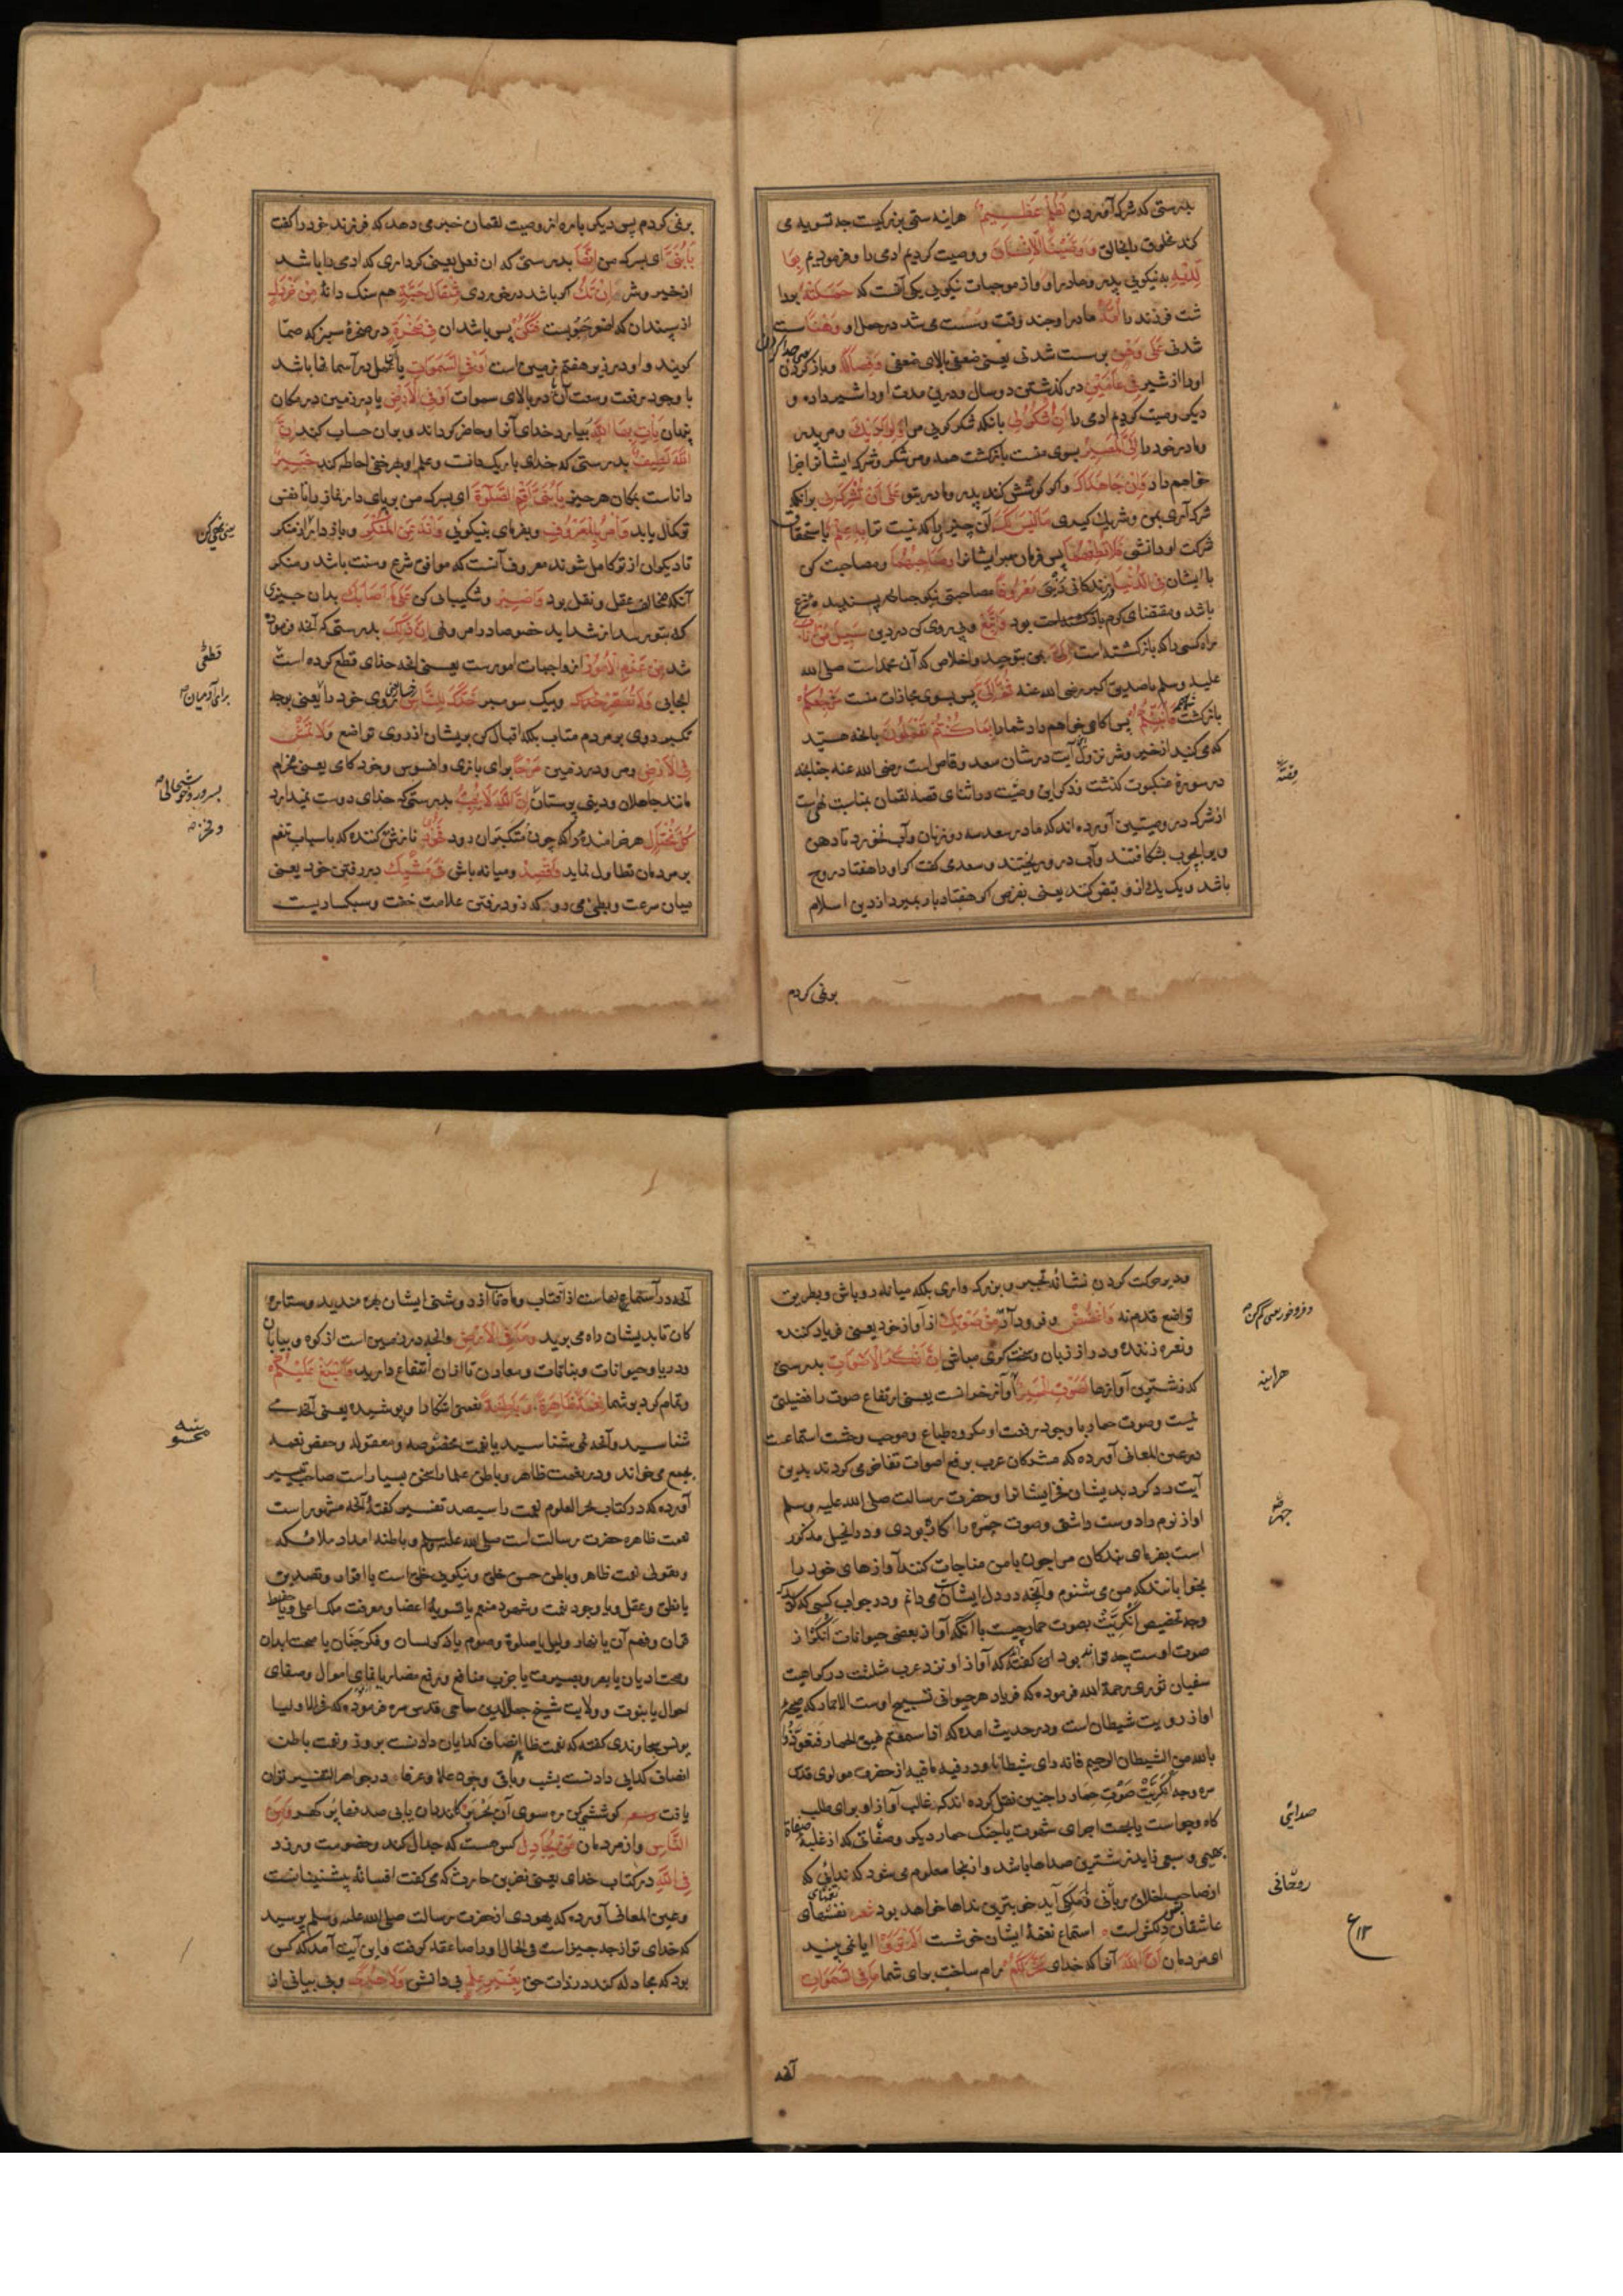 بدرستی که شرک آوردن لَظُلْمٌ عَظِیمٌ هراینه ستمی بزرکیست جه تسویه می
کند مخلوق را بخالق وَوَصَّیْنَا الْاِنْسَانَ و وصیت کردیم ادمی را و فرمودیم بِوَا
لِدَیْهِ به نیکویی بپدر و مادر او و از موجبات نیکویی یکی آنست که حَمَلَتْهُ بودا
شت فرزند را اُمُّهُ مادر او جند وقت و سست می شد در حمل او وَهْنًا سست
شدنی عَلَی وَهْنٍ بر سست شدنی یعنی ضعفی بالای ضعفی وَفِصَالُهُ و باز کردن
اورا از شیر فِی عَامَیْنِ در کذشتن دو سال و درین مدت اورا شیر داده و
دیکر وصیت کردیم ادمی را اَنِ اشْکُرْ لِی بانکه شکر کویی مرا وَلِوَالِدَیْکَ و مر پدر
و مادر خود را اِلَیَّ الْمَصِیرُ بسوی منست بازکشت همه و من شکر و شرک ایشانرا جزا
خواهم داد وَاِنْ جَاهَدَاکَ و اکر کوشش کنند پدر و مادر بتو عَلَی اَنْ تُشْرِکَ بِی برانکه
شرک آری بمن و شریک کیری مَا لَیْسَ لَکَ آن چیزی را که نیست ترا بِهِ عِلْمٌ باستحقاق
شرکت او دانشی فَلَا تُطِعْهُمَا پس فرمان مبر ایشانرا وَصَاحِبْهُمَا و مصاحبت کن
با ایشان فِی الدُّنْیَا در زندکانی دنیی مَعْرُوفًا مصاحبتی نیکو جنانکه پسندیده شرع
باشد و مقتضای کرم وَاتَّبِعْ و پی روی کن در دین سَبِیلَ مَنْ اَنَابَ
راه کسی را که بازکشته است اِلَیَّ بمن بتوحید و اخلاص که آن محمد است صلی الله
علیه وسلم یا صدیق اکبر رضی الله عنه ثُمَّ اِلَیَّ پس بسوی مجازات منست مَرْجِعُکُمْ
بازکشت شما فَاُنَبِّئُکُمْ پس اکاهی خواهم داد شما را بِمَا کُنْتُمْ تَعْمَلُونَ بانچه هستید
که می کنید از خیر و شر نزول آیت در شان سعد وقاص است رضی الله عنه جنانجه
در سورهٔ عنکبوت کذشت و ذکر این وصیت در اثنای قصهٔ لقمان بمناسبت نهی است
از شرک در وصیتین آورده اند که مادر سعد سه روز نان و آب نخورد تا دهن
ویرا بچوب بشکافتند و آب درو ریختند و سعد می کفت کر اورا هفتاد روح
باشد و یک یک ازو قبض کنند یعنی بفرض اکر هفتاد بار بمیرد از دین اسلام
برنمی کردم
برنمی کردم پس دیکر باره از وصیت لقمان خبر می دهد که فرزند خود را کفت
یَا بُنَیَّ ای پسرک من اِنَّهَا بدرستی که ان فعل یعنی کرداری که ادمی را باشد
از خیر و شر اِنْ تَکُ اکر باشد در خوردی مِثْقَالَ حَبَّةٍ هم سنک دانهٔ مِنْ خَرْدَلٍ
از سپندان که اصغر حبوبست فَتَکُنْ پس باشد ان فِی صَخْرَةٍ در صخرهٔ سبز که صمّا
کویند و او در زیر هفتم زمین است اَوْ فِی السَّمٰوَاتِ یا آن عمل در آسمانها باشد
با وجود رفعت و سعت آن در بالای سموات اَوْ فِی الْاَرْضِ یا در زمین در مکان
پنهان یَأْتِ بِهَا اللّٰهُ بیارد خدای آنرا و حاضر کرداند و بران حساب کند اِنَّ
اللّٰهَ لَطِیفٌ بدرستی که خدای باریک دانست و علم او بهر خفی احاطه کند خَبِیرٌ
داناست بمکان هر چیز یَا بُنَیَّ اَقِمِ الصَّلٰوةَ ای پسرک من بر پای دار نماز را تا نفس
تو کمال یابد وَأْمُرْ بِالْمَعْرُوفِ و بفرمای بنیکویی وَانْهَ عَنِ الْمُنْکَرِ و باز دار از منکر
تا دیکران از تو کامل شوند معروف آنست که موافق شرع و سنت باشد و منکر
آنکه مخالف عقل و نقل بود وَاصْبِرْ و شکیبایی کن عَلَی مَا اَصَابَکَ بدان جیزی
که بتو رسد از شداید خصوصا در امر و نهی اِنَّ ذٰلِکَ بدرستی که آنچه فرموده
شد مِنْ عَزْمِ الْاُمُورِ از واجبات امورست یعنی انچه خدای قطع کرده است
ایجابی وَلَا تُصَعِّرْ خَدَّکَ لِلنَّاسِ روی خود را یعنی بوجه
تکبر روی بر مردم متاب بلکه اقبال کن بریشان از روی تواضع وَلَا تَمْشِ
فِی الْاَرْضِ و مرو در زمین مَرَحًا برای بازی و افسوس و خرد کامی یعنی مخرام
مانند جاهلان و دینی پرستان اِنَّ اللّٰهَ لَا یُحِبُّ بدرستی که خدای دوست نمیدارد
کُلَّ مُخْتَالٍ هر خرامنده را که چون متکبران رود فَخُورٍ نازش کننده که باسباب تنعم
بر مردمان تطاول نماید وَاقْصِدْ و میانه باش فِی مَشْیِکَ در رفتن خود یعنی
میان سرعت و بطی می رو که زود رفتن علامت خفت و سبکساریست
قطعی
برای آدمیان
و دیر حرکت کردن نشانهٔ تجبر و بزرک واری بلکه میانه رو باش و بطریق
تواضع قدم نه وَاغْضُضْ و فرود آر مِنْ صَوْتِکَ از آواز خود یعنی فریاد کننده
و نعره زننده و دراز زبان و سخت کوی مباش اِنَّ اَنْکَرَ الْاَصْوَاتِ بدرستی
که زشترین آوازها لَصَوْتُ الْحَمِیرِ آواز خرانست یعنی ارتفاع صوت را فضیلتی
نیست و صوت حمار با وجود رفعت او مکروه طباع و موجب وحشت استماعست
در عین المعانی آورده که مشرکان عرب برفع اصوات تفاخر می کردند بدین
آیت رد کرد بدیشان فخر ایشانرا و حضرت رسالت صلی الله علیه وسلم
اواز نرم را دوست داشتی و صوت جهر را کاره بودی و در انجیل مذکور
است بفرمای بندکان مرا چون با من مناجات کنند آوازهای خود را
که من می شنوم و آنچه در دل ایشانست می دانم و در جواب کسی که کوید
وجه تخصیص انکریت بصوت حمار چیست با انکه آواز بعضی حیوانات انکر از
صوت اوست چه تواند بود ان کفته اند که آواز او نزد عرب مثلست در کراهیت
سفیان ثوری رحمة الله فرموده که فریاد هر حیوانی تسبیح اوست الا حمار که
اواز رویت شیطان است و در حدیث امده که اذا سمعتم نهیق الحمار فتعوّذوا
بالله من الشیطان الرجیم فانه رای شیطانا و در فیه مافیه از حضرت مولوی قدس
سره وجه انکریت صوت حمار را چنین نقل کرده اند که غالب آواز او برای طلب
کاه و جو است یا بجهت اجرای شهوت یا جنک حمار دیکر و صفاتی که از غلبهٔ
بهیمی و سبعی زاید زشترین صداها باشد و از ینجا معلوم می شود که ندائی که
از صاحب اخلاق ربّانی و ملکی آید خوبترین نداها خواهد بود شعر نغمهای
عاشقان دلکش است استماع نغمهٔ ایشان خوشست اَلَمْ تَرَوْا ایا نمی بینید
ای مردمان اَنَّ اللّٰهَ آنرا که خدای سَخَّرَ لَکُمْ رام ساخت برای شما مَا فِی السَّمٰوَاتِ
آنچه
هراینه
روحانی
آنچه در آسمانهاست از آفتاب و ماه تا از روشنی ایشان بهره مندید و ستاره
کان تا بدیشان راه می برید وَمَا فِی الْاَرْضِ و انچه در زمین است از کوه و بیابان
و دریا و حیوانات و نباتات و معادن تا از ان انتفاع دارید وَاَسْبَغَ عَلَیْکُمْ
و تمام کرد بر شما نِعَمَهُ ظَاهِرَةً وَبَاطِنَةً نعمتی اشکارا و پوشیده یعنی آنچه می
شناسید و آنچه نمی شناسید یا نعمت محسوسه و معقوله و حفص نعمه
بجمع می خواند و در نعمت ظاهر و باطن علما را سخن بسیار است صاحب تیسیر
آورده که در کتاب بحر العلوم نعمت را سیصد تفسیر کفته آنچه مشهور است
نعمت ظاهره حضرت رسالت است صلی الله علیه وسلم و باطنه امداد ملائکه
و بقولی نعمت ظاهر و باطن حسن خلق و نیکویی خلق است یا اقرار و تصدیق
یا نطق و عقل و یا وجود نعمت و شهود منعم یا تسویهٔ اعضا و معرفت ملک اعلی و یا حفظ
قران و فهم آن یا نهار و لیل یا صلوة و صوم یا ذکر لسان و فکر جنان یا صحت ابدان
و صحت ادیان یا بصر و بصیرت یا جذب منافع و رفع مضار یا بقای اموال و صفای
احوال یا نبوت و ولایت شیخ جمال الدین ساجی قدس سره فرموده که
کفته که نعمت ظاهر انصاف کدایان دادنست بروز و نعمت باطن
انصاف کدایی دادنست بشب و باقی وجوه علما و عرفا در جواهر التفسیر توان
یافت کوشش کن ره سوی آن بحر پر کاندران یابی صد فضا پر کهر وَمِنَ
النَّاسِ و از مردمان مَنْ یُجَادِلُ کس هست که جدال کند و خصومت ورزد
فِی اللّٰهِ در کتاب خدای یعنی نضر بن حارث که می کفت افسانهٔ پیشنیانست
و عین المعانی آورده که یهودی از حضرت رسالت صلی الله علیه وسلم پرسید
که خدای تو از چه چیز است فی الحال اورا صاعقه کرفت و این آیت آمد که کس
بود که مجادله کند در ذات حق بِغَیْرِ عِلْمٍ بی دانشی وَلَا هُدًی و بی بیانی از